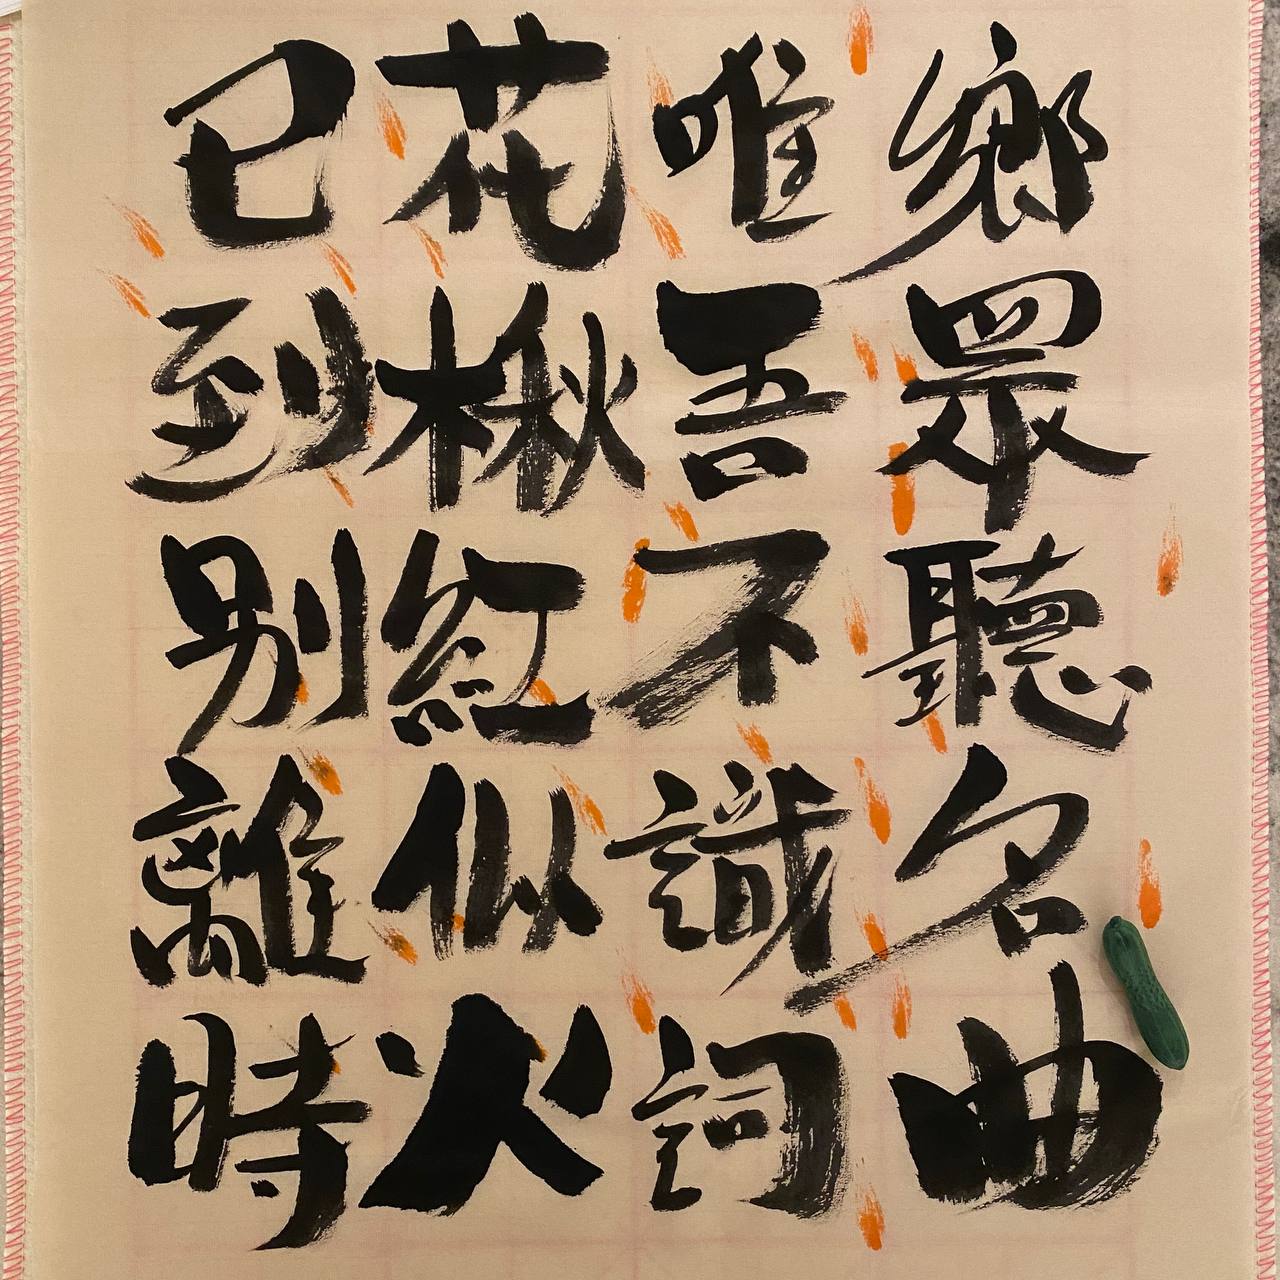 鄉眾聽名曲
唯吾不識詞
花楸紅似火
已到別離時